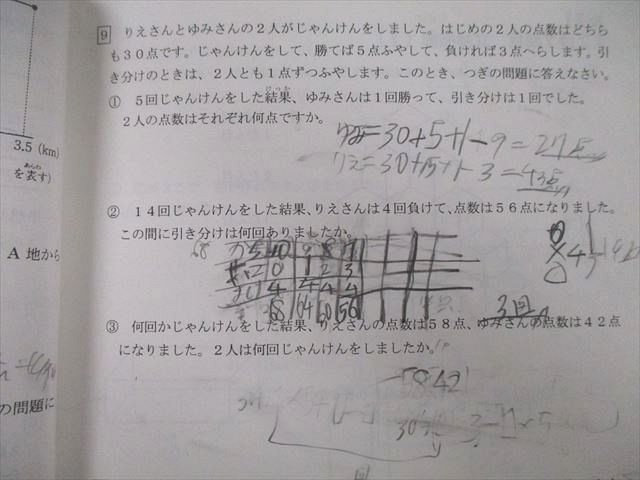 9 りえさんとゆみさんの2人がじゃんけんをしました。はじめの2人の点数はどちら
も30点です。じゃんけんをして、勝てば5点ふやして、負ければ3点へらします。引
き分けのときは、2人とも1点ずつふやします。このとき、つぎの問題に答えなさい。
① 5回じゃんけんをした結果、ゆみさんは1回勝って、引き分けは1回でした。
2人の点数はそれぞれ何点ですか。
ゆみ=30+5+1-9=27点
りえ=30+15+1-3=43点
3.5 (km)
を表す)
② 14回じゃんけんをした結果、りえさんは4回負けて、点数は56点になりました。
この間に引き分けは何回ありましたか。
A 地から
68
10 9 8 7
0 1 2 3
4 4 4 4
68 64 60 56
3回
③ 何回かじゃんけんをした結果、りえさんの点数は58点、ゆみさんの点数は42点
になりました。2人は何回じゃんけんをしましたか。
の問題に
58 42